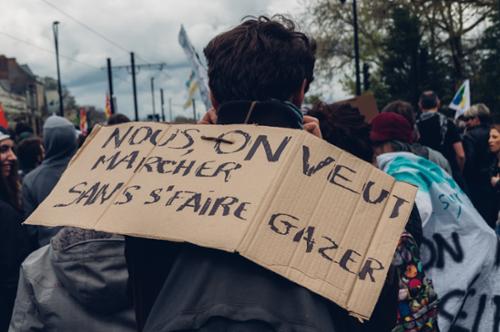 NOUS, ON VEUT
MARCHER
SANS S'FAIRE GAZER
ON